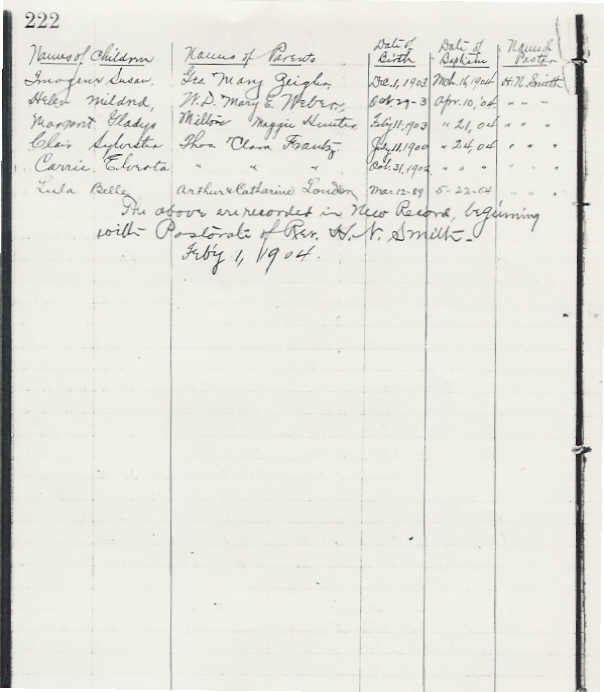 222
Names of Children Names of Parents Date of Birth Date of Baptism Name of Pastor
Imogene Susan. Geo Mary Zeigler, Dec. 1, 1903 Mch. 16, 1904 H. N. Smith
Helen Mildred, W. D. Mary E. Weber, Oct 29-3 Apr. 10, '04 " " "
Margaret Gladys Milton Maggie Hunter Feby 11, 1903 " 21, 04 " " "
Clair Sylvester Thos "Clara Frantz July 11, 1900 " 24, 04 " " "
Carrie. Elverta " " " Oct. 31, 1902 " " " " " "
Lula Belle Arthur & Catharine London Mar 12-89 5-22-04 " " "
The above are recorded in New Record, beginning
with Pastorate of Rev. H. N. Smith-
Feb'y 1, 1904.